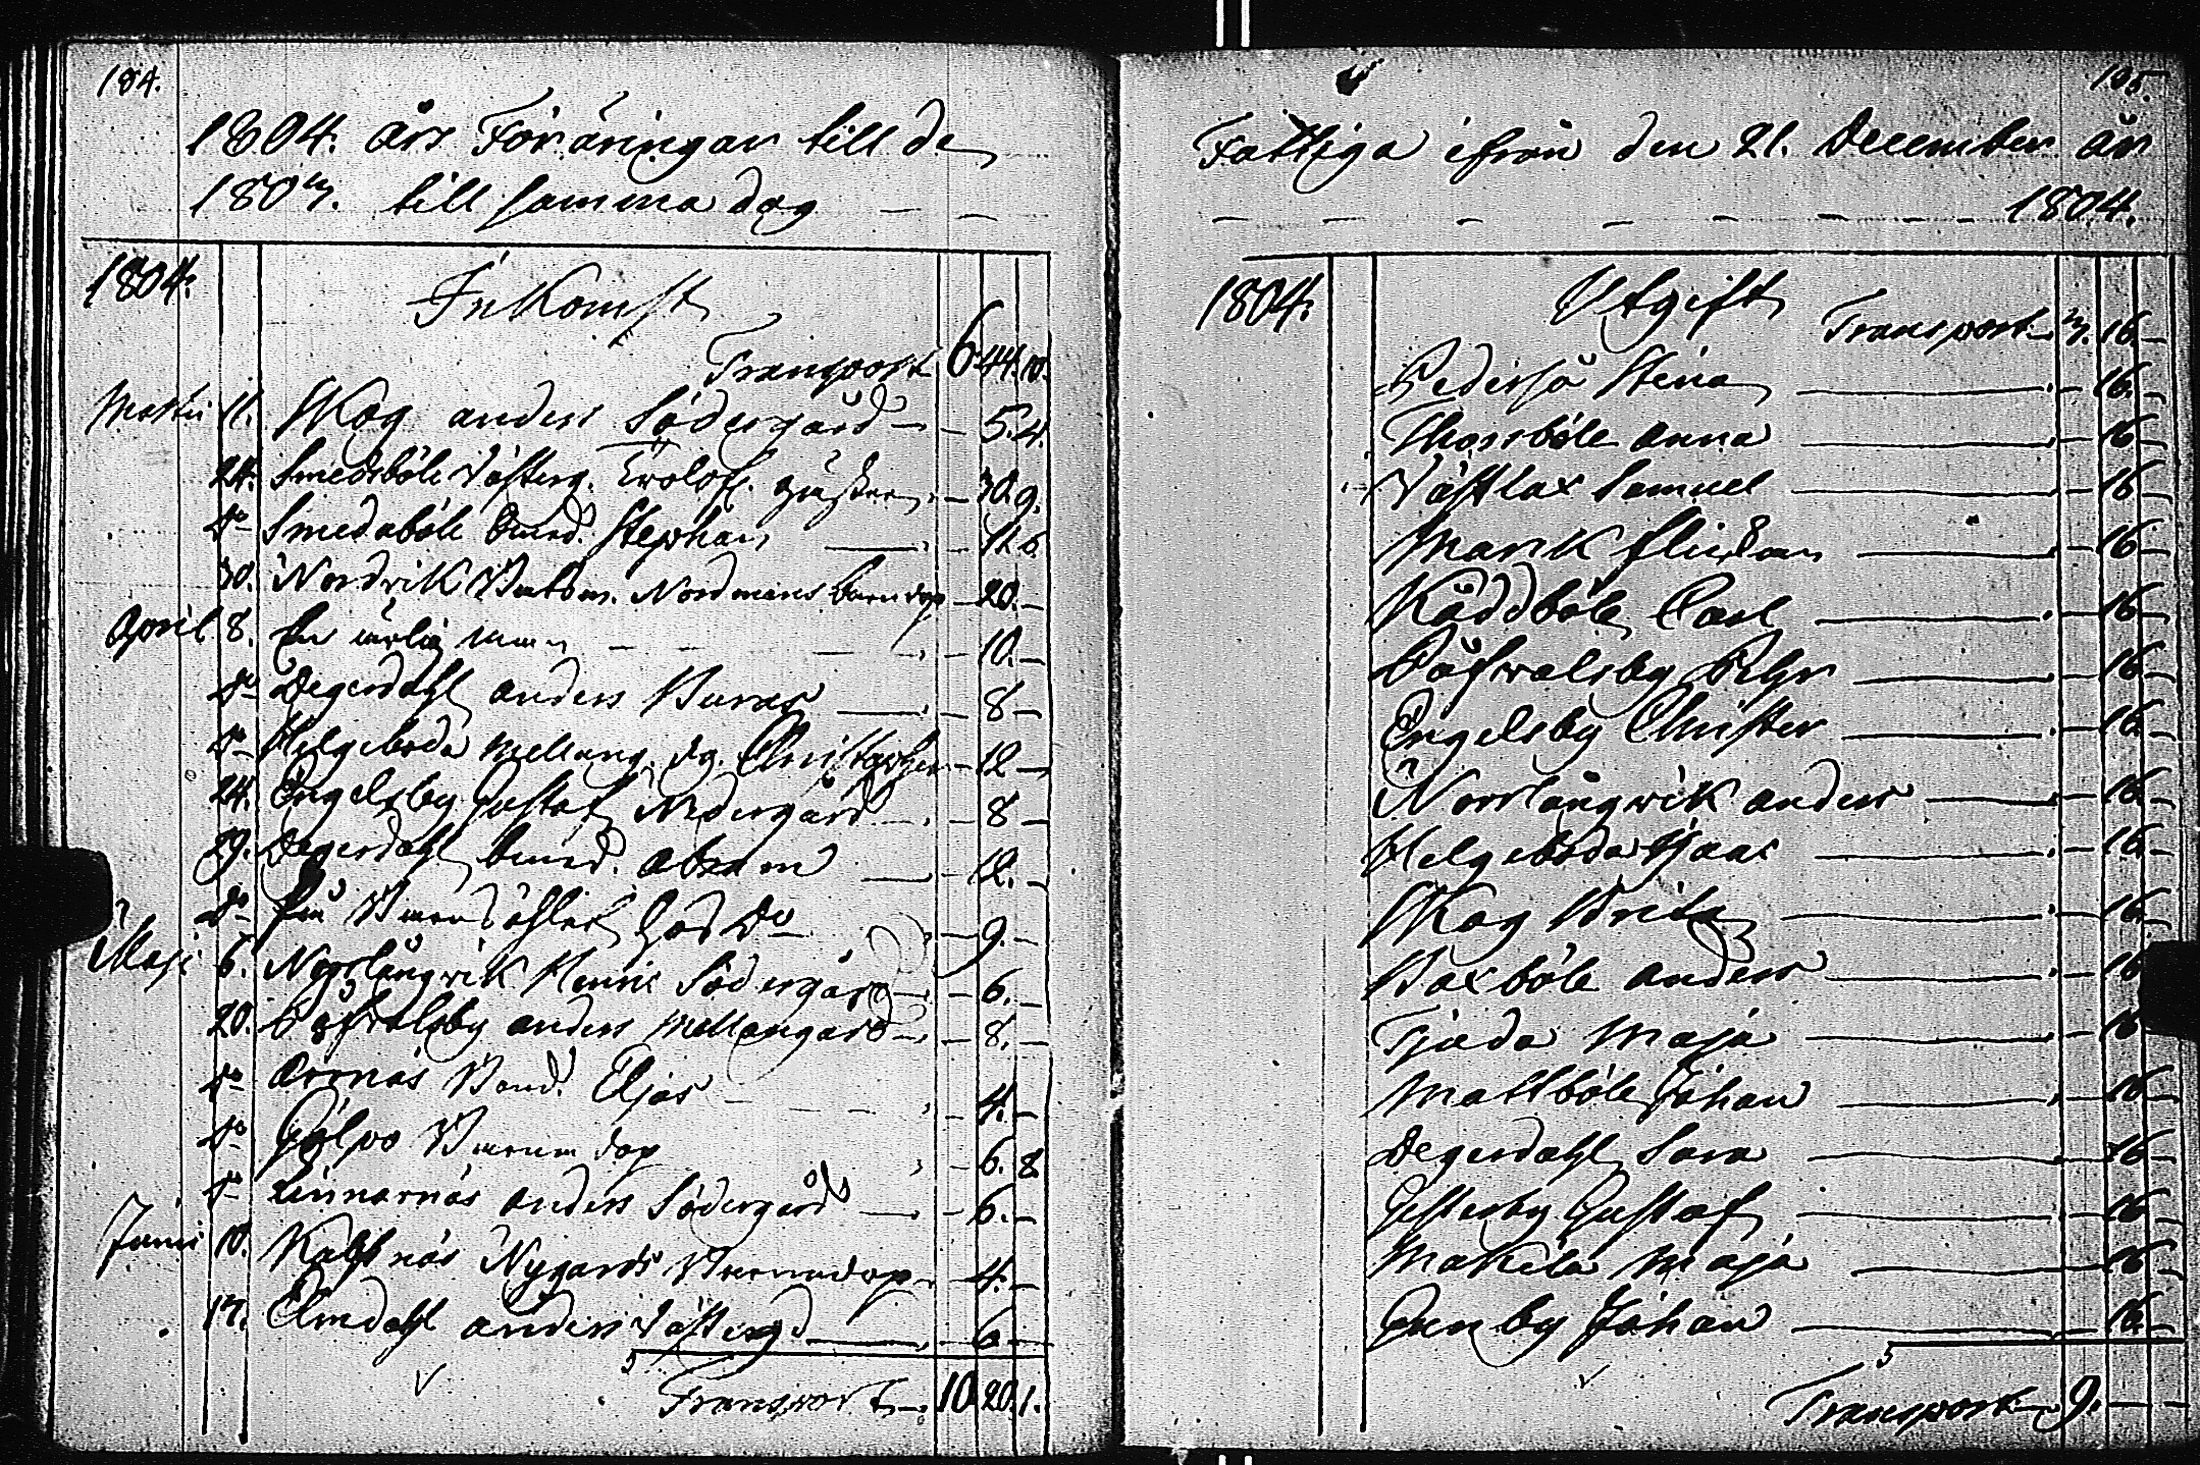 184.
1804. års Föräringar till de
1803. till samma dag
1804.
Inkomst
Transport 6. 44. 10.
Martii 11. Skog anders Södergård 5. 4.
24. Smedsböle Västerg. 30. 9.
Do Smedsböle Bond. Stephan 11. 6.
30. Nordvik Nordmans barndop 20.
April 8. En ärlig man 10.
Do Degerdahl anders 8
Do Helgeboda Mellang. dg. Christopher 12
24. Engelsby Gustaf Nedergård 8
29. Degerdahl bond. abram 12.
Do Do 9.
Maji 6. Norrlångvik Henric Södergård 6.
20. Påfvalsby anders Mellangård 8.
Do arnnäs Bond. Eljas 4.
Do Gölpo Barndop 6. 8
Do Linnarnäs anders Södergård 6.
Junii 10. Kalfnäs Nygards Barndop 4.
17. Elmdahl anders Västergd 6
Transport 10. 20. 1.
185.
Fattiga ifrån den 21. December år
1804.
1804.
Utgift
Transport 3. 16.
Pedersjö Stina 16.
Thorsböle anna 16
Västlax Samuel 16
Mark 16
Räddböle Carl 16
Påfvalsby Pehr 16
Engelsby Christer 16
Norrlångvik anders 16
Helgeboda Isaac 16
Skog Brita 16
Baxböle anders 16
Tjuda Maja 16
Mattböle Johan 16
Degerdahl Sara 16
Gesterby Gustaf 16
Makila Maja 16
Genby Johan 16
Transport 9.